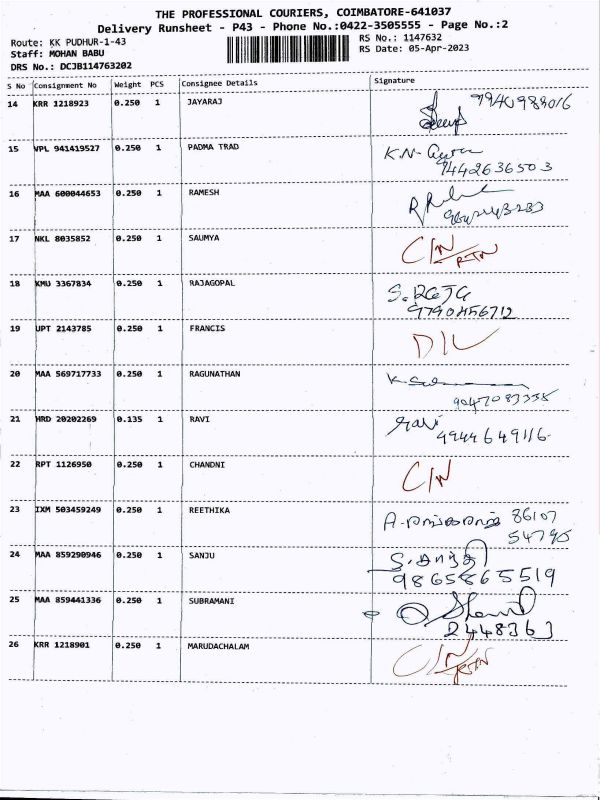 THE PROFESSIONAL COURIERS, COIMBATORE-641037
Delivery Runsheet - P43 - Phone No.:0422-3505555 - Page No.:2
Route: KK PUDHUR-1-43 RS No.: 1147632
Staff: MOHAN BABU RS Date: 05-Apr-2023
DRS No.: DCJB114763202
S No Consignment No Weight PCS Consignee Details Signature
14 KRR 1218923 0.250 1 JAYARAJ
15 VPL 941419527 0.250 1 PADMA TRAD K.N-
9442636503
16 MAA 600044653 0.250 1 RAMESH
17 NKL 8035852 0.250 1 SAUMYA C/N
RTN
18 KMU 3367834 0.250 1 RAJAGOPAL
19 UPT 2143785 0.250 1 FRANCIS D/L
20 MAA 569717733 0.250 1 RAGUNATHAN
9047083358
21 HRD 20202269 0.135 1 RAVI Ravi
4944649116
22 RPT 1126950 0.250 1 CHANDNI C/N
23 IXM 503459249 0.250 1 REETHIKA 86107
54790
24 MAA 859290946 0.250 1 SANJU
9865865519
25 MAA 859441336 0.250 1 SUBRAMANI
2448363
26 KRR 1218901 0.250 1 MARUDACHALAM C/N
RTN